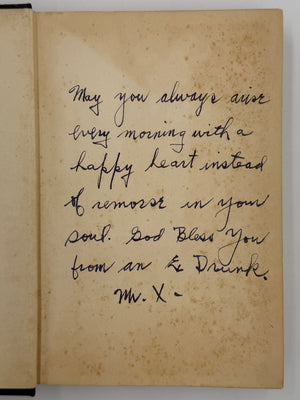 May you always arise
every morning with a
happy heart instead
of remorse in your
soul. God Bless You
from an Ex Drunk.
Mr. X-